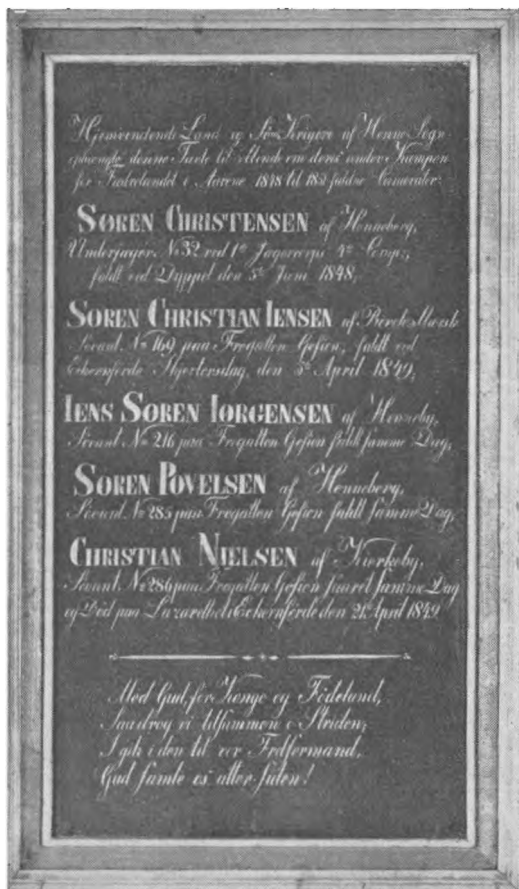 Hjemvendende Land og Sø-Krigere af Henne Sogn
ophængte denne Tavle til Minde om deres under Kampen
for Fædrelandet i Aarene 1848 til 1851 faldne Camerater:
SØREN CHRISTENSEN af Henneberg,
Underjæger No 32 ved 1te Jægercorps 4de Comp;
faldt ved Dyppel den 5te Juni 1848,
SØREN CHRISTIAN IENSEN af
Søvant No 169 paa Fregatten Gefion, faldt ved
Eckernförde Skjertorsdag, den 5te April 1849,
IENS SØREN IØRGENSEN af Henneby,
Søvant No 216 paa Fregatten Gefion faldt samme Dag,
SØREN POVELSEN af Henneberg,
Søvant No 285 paa Fregatten Gefion faldt samme Dag,
CHRISTIAN NIELSEN af Kirkeby,
Søvant No 286 paa Fregatten Gefion saaret samme Dag
og Død paa Lazarethet i Eckernförde den 21 April 1849
Med Gud, for Konge og Fødeland,
Saa drog vi tilsammen i Striden;
I gik i den til vor
Gud samle os atter siden!